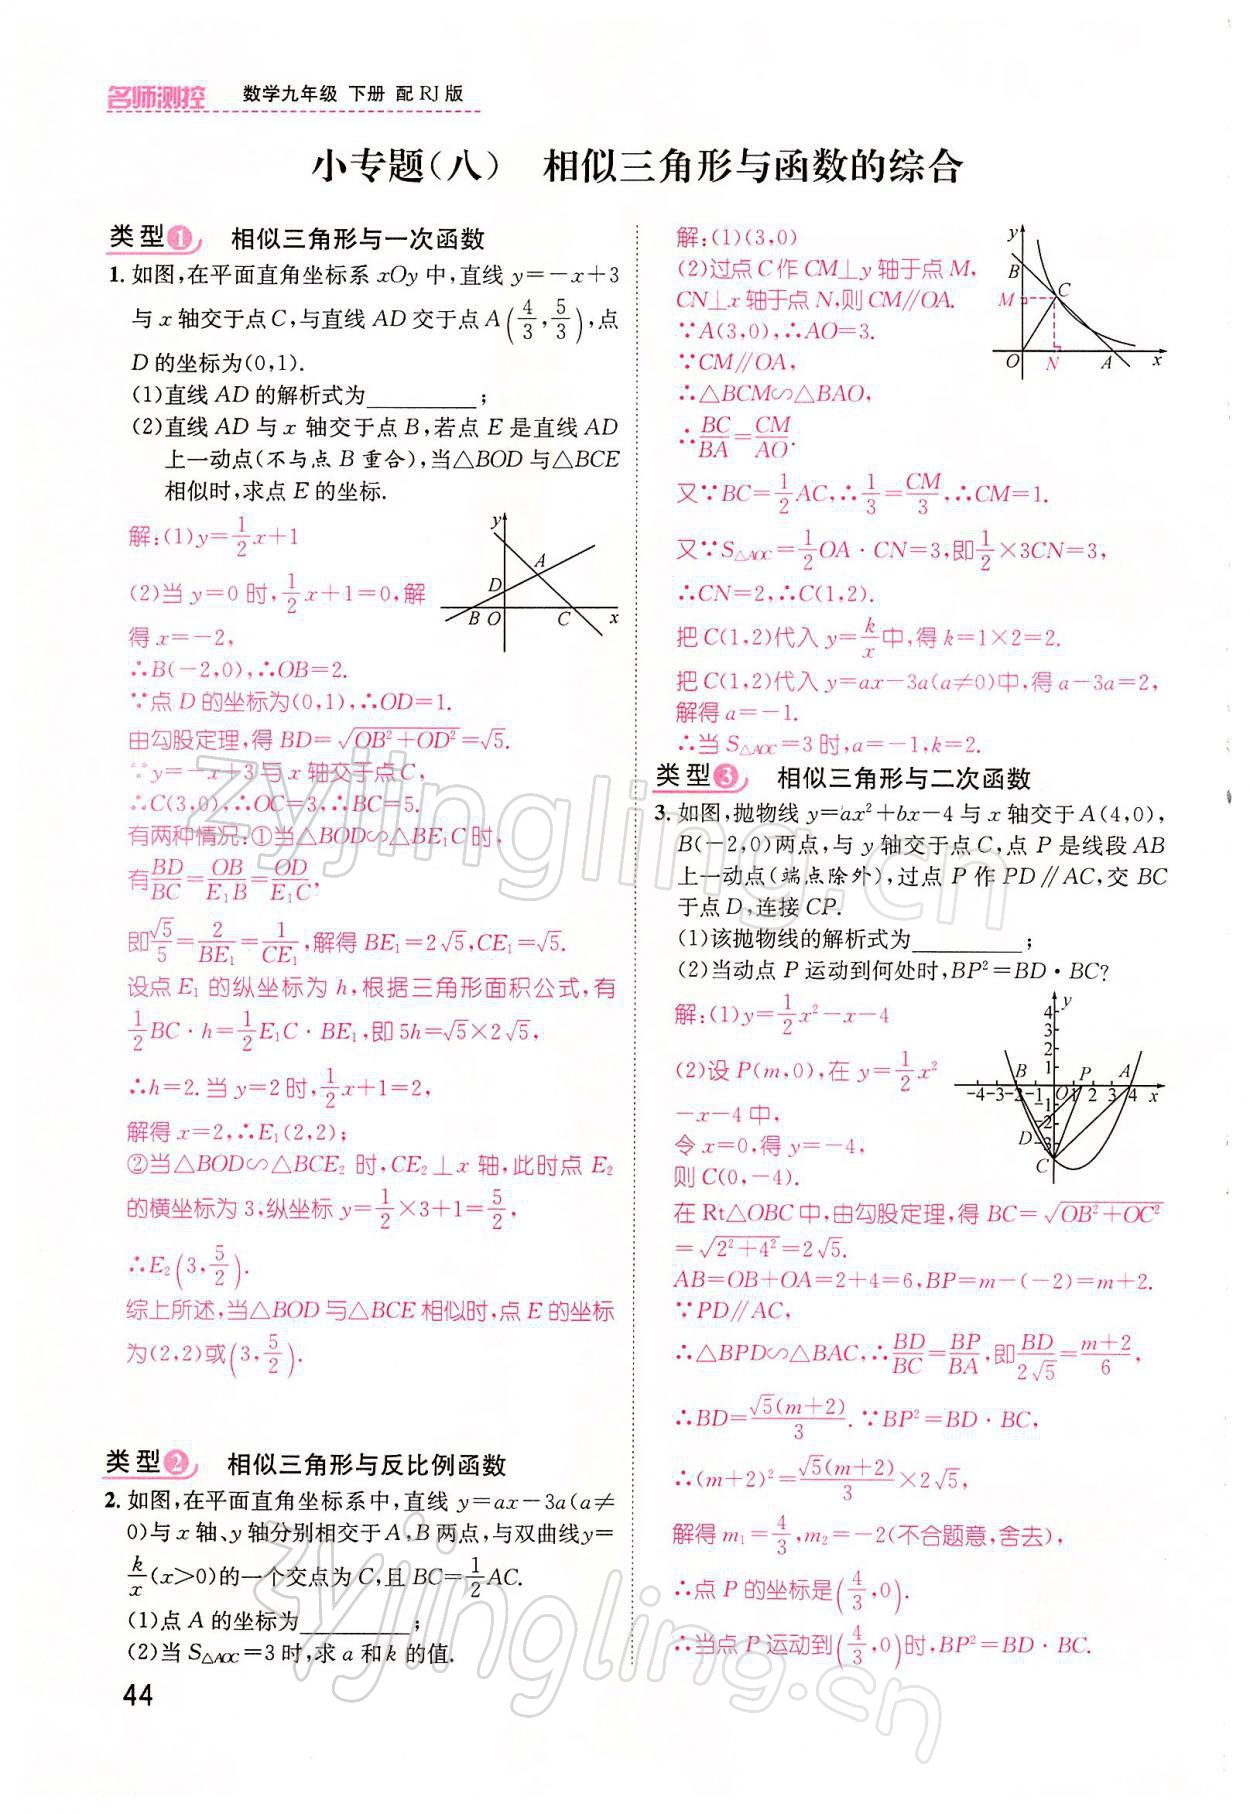 名师测控 数学九年级 下册 配RJ版
小专题(八) 相似三角形与函数的综合
类型1 相似三角形与一次函数
1. 如图,在平面直角坐标系 xOy 中,直线 y=-x+3
与 x 轴交于点 C,与直线 AD 交于点 A(4/3, 5/3),点
D 的坐标为(0,1).
(1)直线 AD 的解析式为__________;
(2)直线 AD 与 x 轴交于点 B,若点 E 是直线 AD
上一动点(不与点 B 重合),当△BOD 与△BCE
相似时,求点 E 的坐标.
解:(1)y=1/2x+1
(2)当 y=0 时,1/2x+1=0,解
得 x=-2,
∴B(-2,0),∴OB=2.
∵点 D 的坐标为(0,1),∴OD=1.
由勾股定理,得 BD=√(OB²+OD²)=√5.
∵y=-x+3 与 x 轴交于点 C,
∴C(3,0),∴OC=3,∴BC=5.
有两种情况:①当△BOD∽△BE₁C 时,
有BD/BC=OB/E₁B=OD/E₁C,
即√5/5=2/BE₁=1/CE₁,解得 BE₁=2√5,CE₁=√5.
设点 E₁ 的纵坐标为 h,根据三角形面积公式,有
1/2BC·h=1/2E₁C·BE₁,即 5h=√5×2√5,
∴h=2.当 y=2 时,1/2x+1=2,
解得 x=2,∴E₁(2,2);
②当△BOD∽△BCE₂ 时,CE₂⊥x 轴,此时点 E₂
的横坐标为 3,纵坐标 y=1/2×3+1=5/2,
∴E₂(3,5/2).
综上所述,当△BOD 与△BCE 相似时,点 E 的坐标
为(2,2)或(3,5/2).
y
A
D
B O C x
类型2 相似三角形与反比例函数
2. 如图,在平面直角坐标系中,直线 y=ax-3a(a≠
0)与 x 轴、y 轴分别相交于 A,B 两点,与双曲线 y=
k/x(x>0)的一个交点为 C,且 BC=1/2AC.
(1)点 A 的坐标为__________;
(2)当 S△AOC=3 时,求 a 和 k 的值.
44
解:(1)(3,0)
(2)过点 C 作 CM⊥y 轴于点 M,
CN⊥x 轴于点 N,则 CM∥OA.
∵A(3,0),∴AO=3.
∵CM∥OA,
∴△BCM∽△BAO,
∴BC/BA=CM/AO.
又∵BC=1/2AC,∴1/3=CM/3,∴CM=1.
又∵S△AOC=1/2OA·CN=3,即1/2×3CN=3,
∴CN=2,∴C(1,2).
把 C(1,2)代入 y=k/x中,得 k=1×2=2.
把 C(1,2)代入 y=ax-3a(a≠0)中,得 a-3a=2,
解得 a=-1.
∴当 S△AOC=3 时,a=-1,k=2.
y
B
M C
O N A x
类型3 相似三角形与二次函数
3. 如图,抛物线 y=ax²+bx-4 与 x 轴交于 A(4,0),
B(-2,0)两点,与 y 轴交于点 C,点 P 是线段 AB
上一动点(端点除外),过点 P 作 PD∥AC,交 BC
于点 D,连接 CP.
(1)该抛物线的解析式为__________;
(2)当动点 P 运动到何处时,BP²=BD·BC?
解:(1)y=1/2x²-x-4
(2)设 P(m,0),在 y=1/2x²
-x-4 中,
令 x=0,得 y=-4,
则 C(0,-4).
在 Rt△OBC 中,由勾股定理,得 BC=√(OB²+OC²)
=√(2²+4²)=2√5.
AB=OB+OA=2+4=6,BP=m-(-2)=m+2.
∵PD∥AC,
∴△BPD∽△BAC,∴BD/BC=BP/BA,即BD/2√5=(m+2)/6,
∴BD=√5(m+2)/3.∵BP²=BD·BC,
∴(m+2)²=√5(m+2)/3×2√5,
解得 m₁=4/3,m₂=-2(不合题意,舍去),
∴点 P 的坐标是(4/3,0).
∴当点 P 运动到(4/3,0)时,BP²=BD·BC.
y
4
3
2
B 1 P A
-4-3-2-1 O 1 2 3 4 x
-1
-2
D -3
C
zyjingling.cn
zyjingling.cn